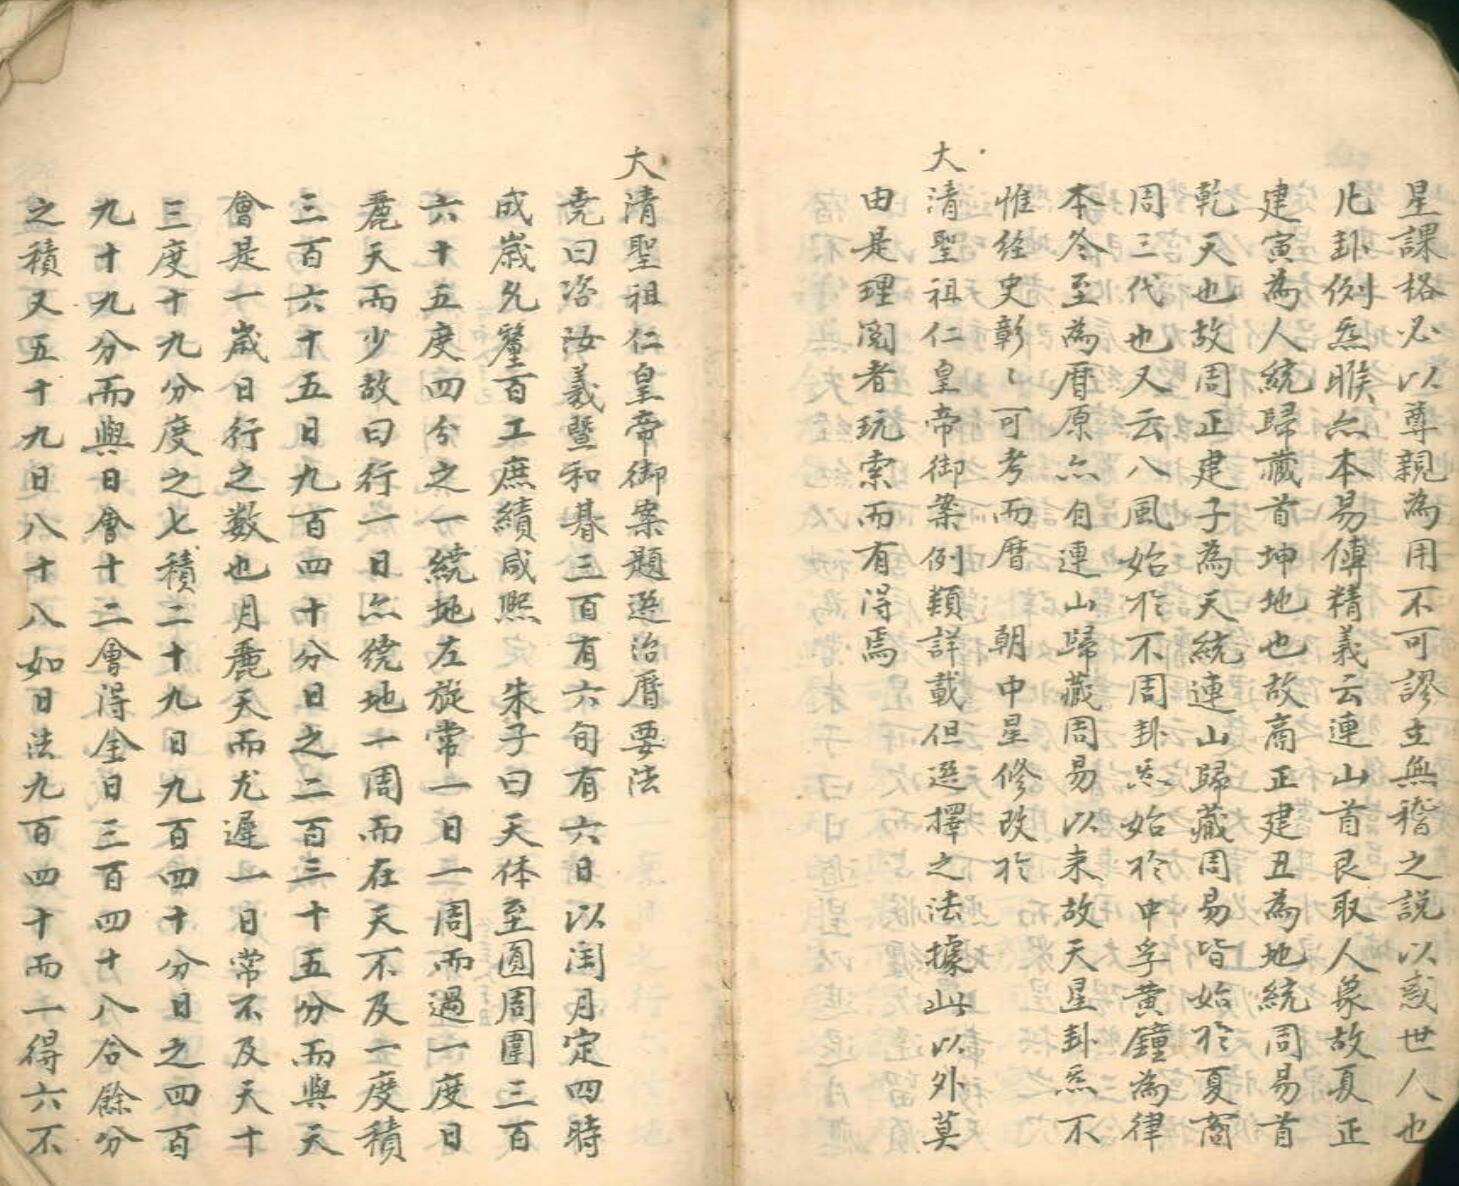 星課格必以尊親為用不可謬立無稽之說以惑世人也
凡卦例炁睺亦本易傳精義云連山首艮取人象故夏正
建寅為人統歸藏首坤地也故商正建丑為地統周易首
乾天也故周正建子為天統連山歸藏周易皆始於夏商
周三代也又云八風始於不周卦炁始於中孚黄鐘為律
本冬至為曆原亦自連山歸藏周易以来故天星卦炁不
惟経史彰〻可考而曆 朝中星修改於
大清聖祖仁皇帝御案例類詳載但選擇之法據此以外莫
由是理閱者玩索而有得焉
大清聖祖仁皇帝御案題選治曆要法
堯曰咨汝羲暨和朞三百有六旬有六日以閏月定四時
成歲允釐百工庶績咸熙 朱子曰天体至圓周圍三百
六十五度四分之一繞地左旋常一日一周而過一度日
麗天而少故日行一日亦繞地一周而在天不及一度積
三百六十五日九百四十分日之二百三十五分而與天
會是一歲日行之數也月麗天而尤遲一日常不及天十
三度十九分度之七積二十九日九百四十分日之四百
九十九分而與日會十二會得全日三百四十八合餘分
之積又五十九日八十八如日法九百四十而一得六不